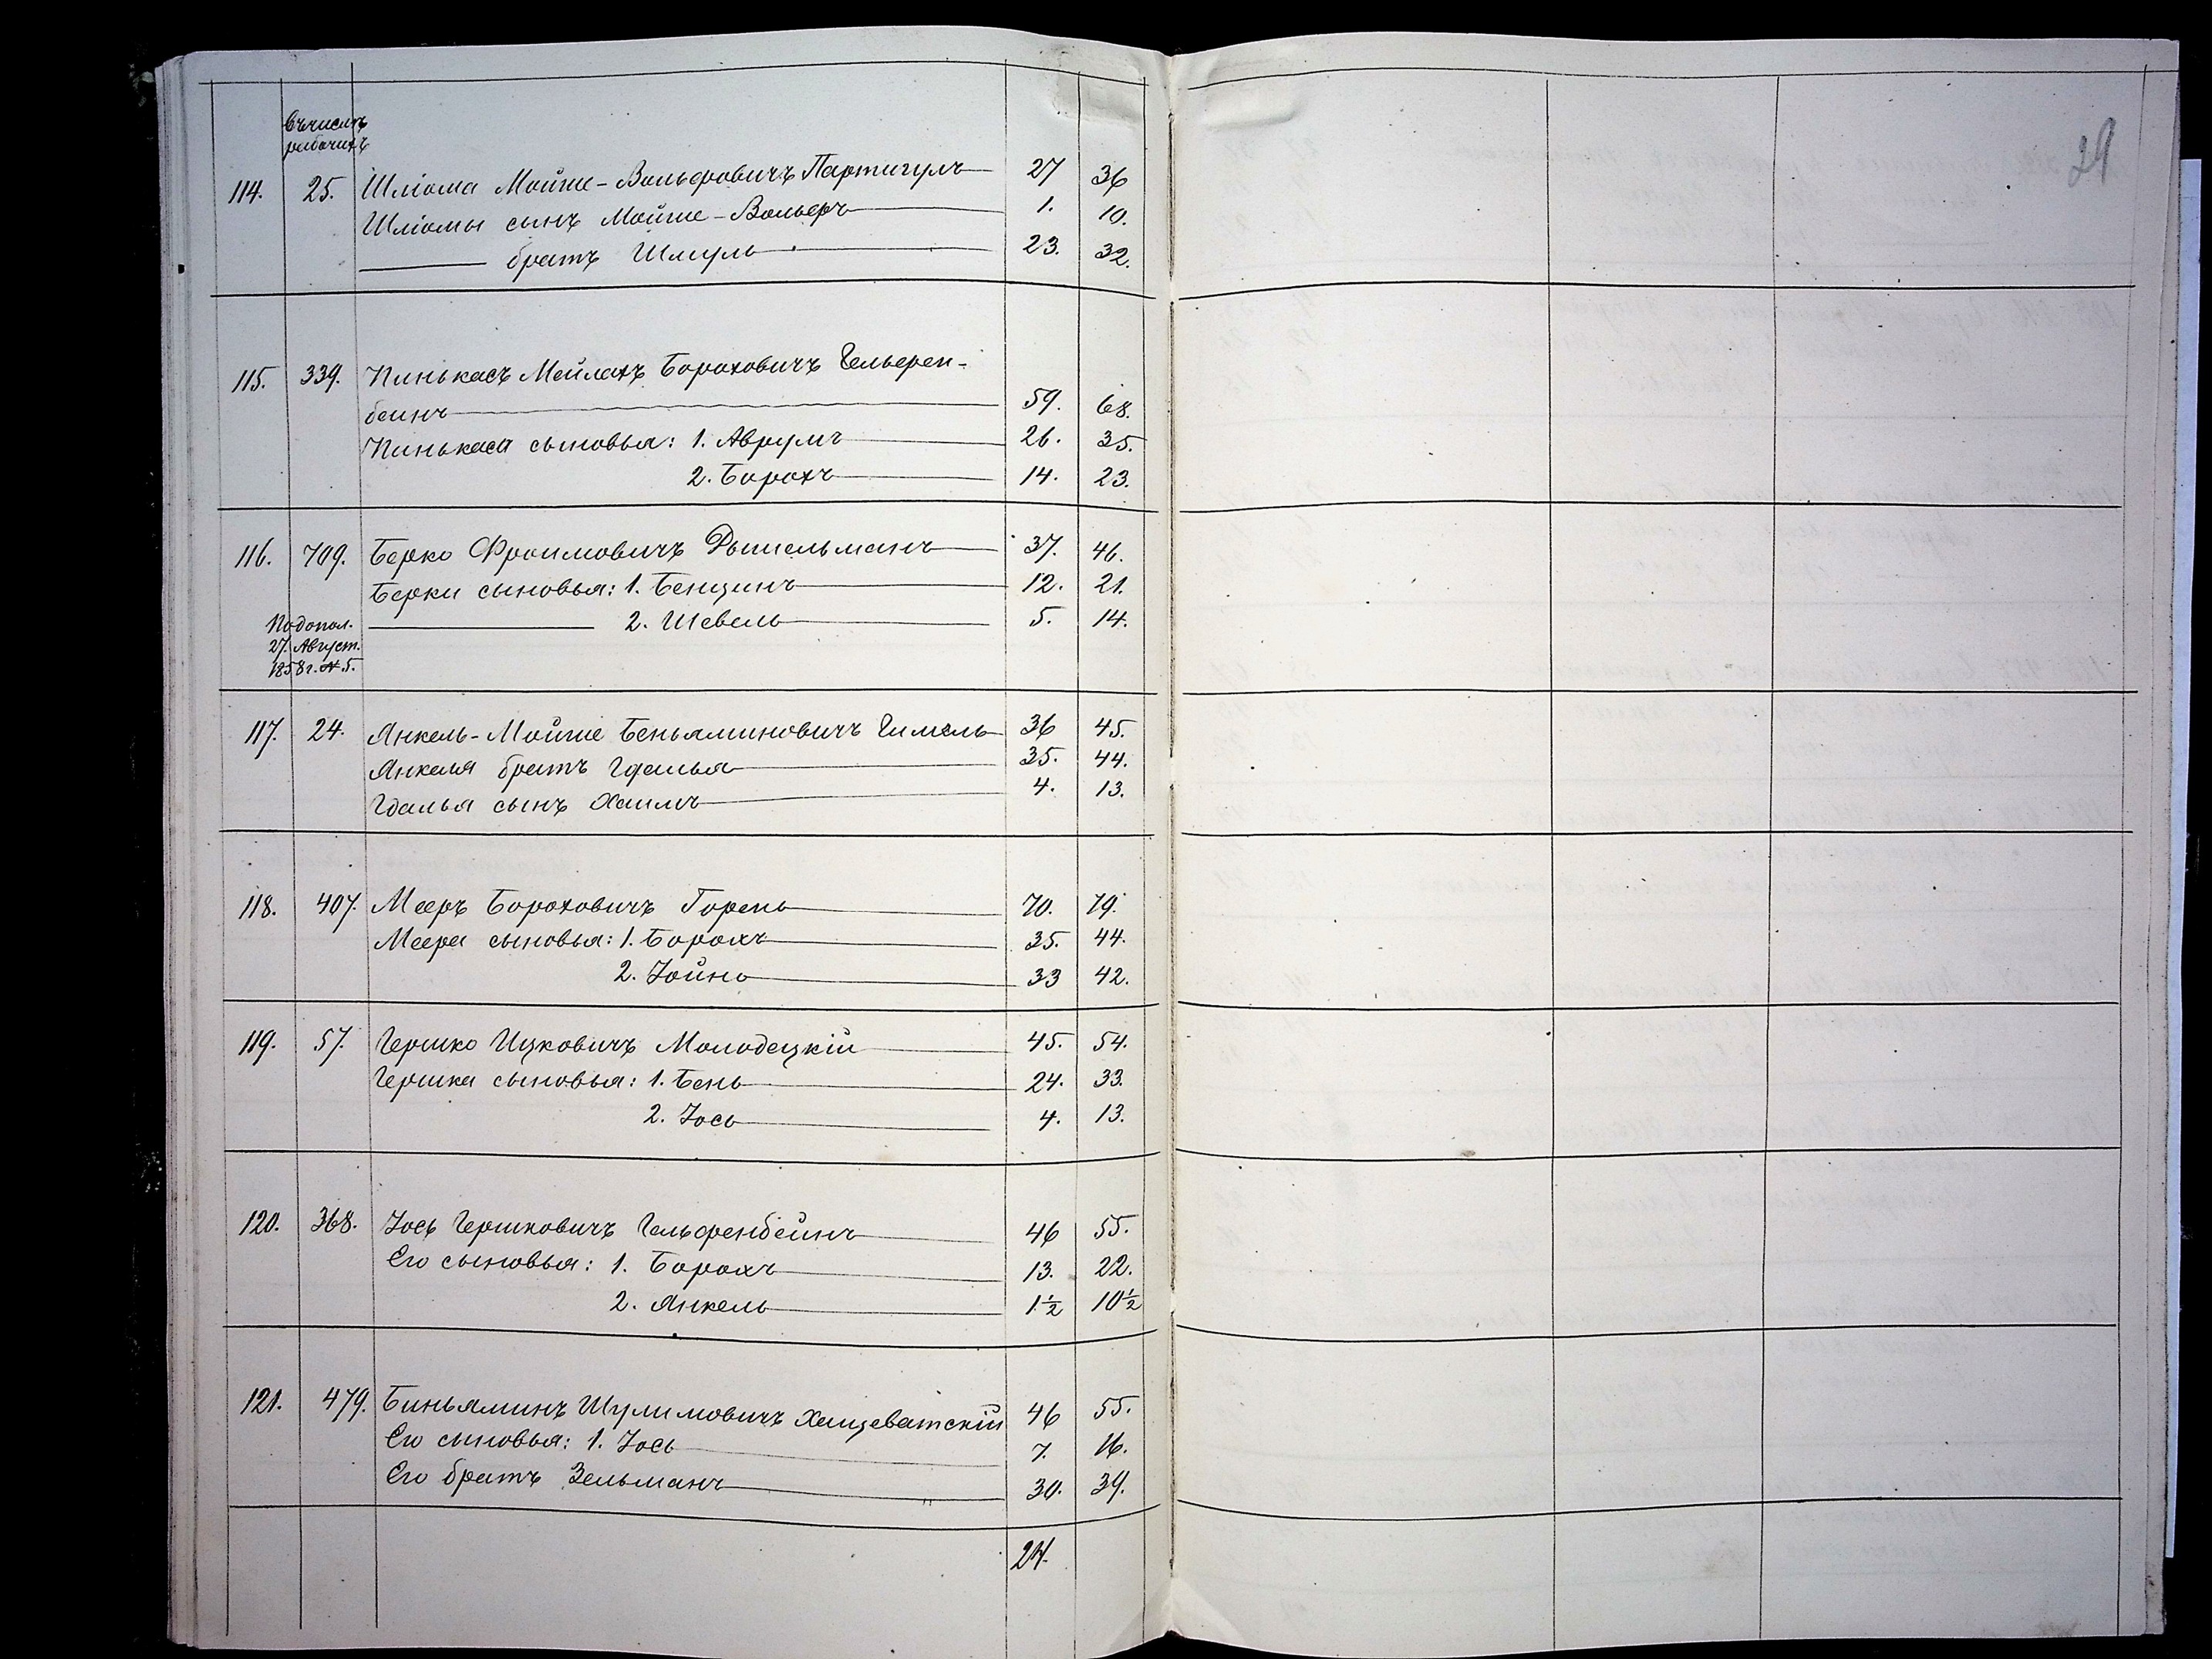 въ числѣ
рабочихъ
29
114. 25. Шліома Мойше-Вольфовичъ Партигулъ 27 36
Шліомы сынъ Мойше-Вольфъ 1. 10.
братъ Шмуль 23. 32.
115. 339. Пинькасъ Мейлахъ Бороховичъ Гельфен-
бейнъ 59. 68.
Пинькаса сыновья: 1. Аврумъ 26. 35.
2. Борохъ 14. 23.
116. 709. Берко Фроимовичъ 37. 46.
Берки сыновья: 1. Бенционъ 12. 21.
2. Шевель 5. 14.
По допол.
27. Август.
1858 г. № 5.
117. 24. Янкель-Мойше Беньяминовичъ Гимель 36 45.
Янкеля братъ Гдалья 35. 44.
Гдалья сынъ Хаимъ 4. 13.
118. 407. Мееръ Бороховичъ Горень 70. 79.
Меера сыновья: 1. Борохъ 35. 44.
2. Іойнь 33 42.
119. 57. Гершко Ицковичъ Молодецкій 45. 54.
Гершка сыновья: 1. Бень 24. 33.
2. Іось 4. 13.
120. 368. Іось Гершковичъ Гельфенбейнъ 46 55.
Его сыновья: 1. Борохъ 13. 22.
2. Янкель 1½ 10½
121. 479. Биньяминъ Шулимовичъ Хащеватскій 46 55.
Его сыновья: 1. Іось 7. 16.
Его братъ Зельманъ 30. 39.
24.